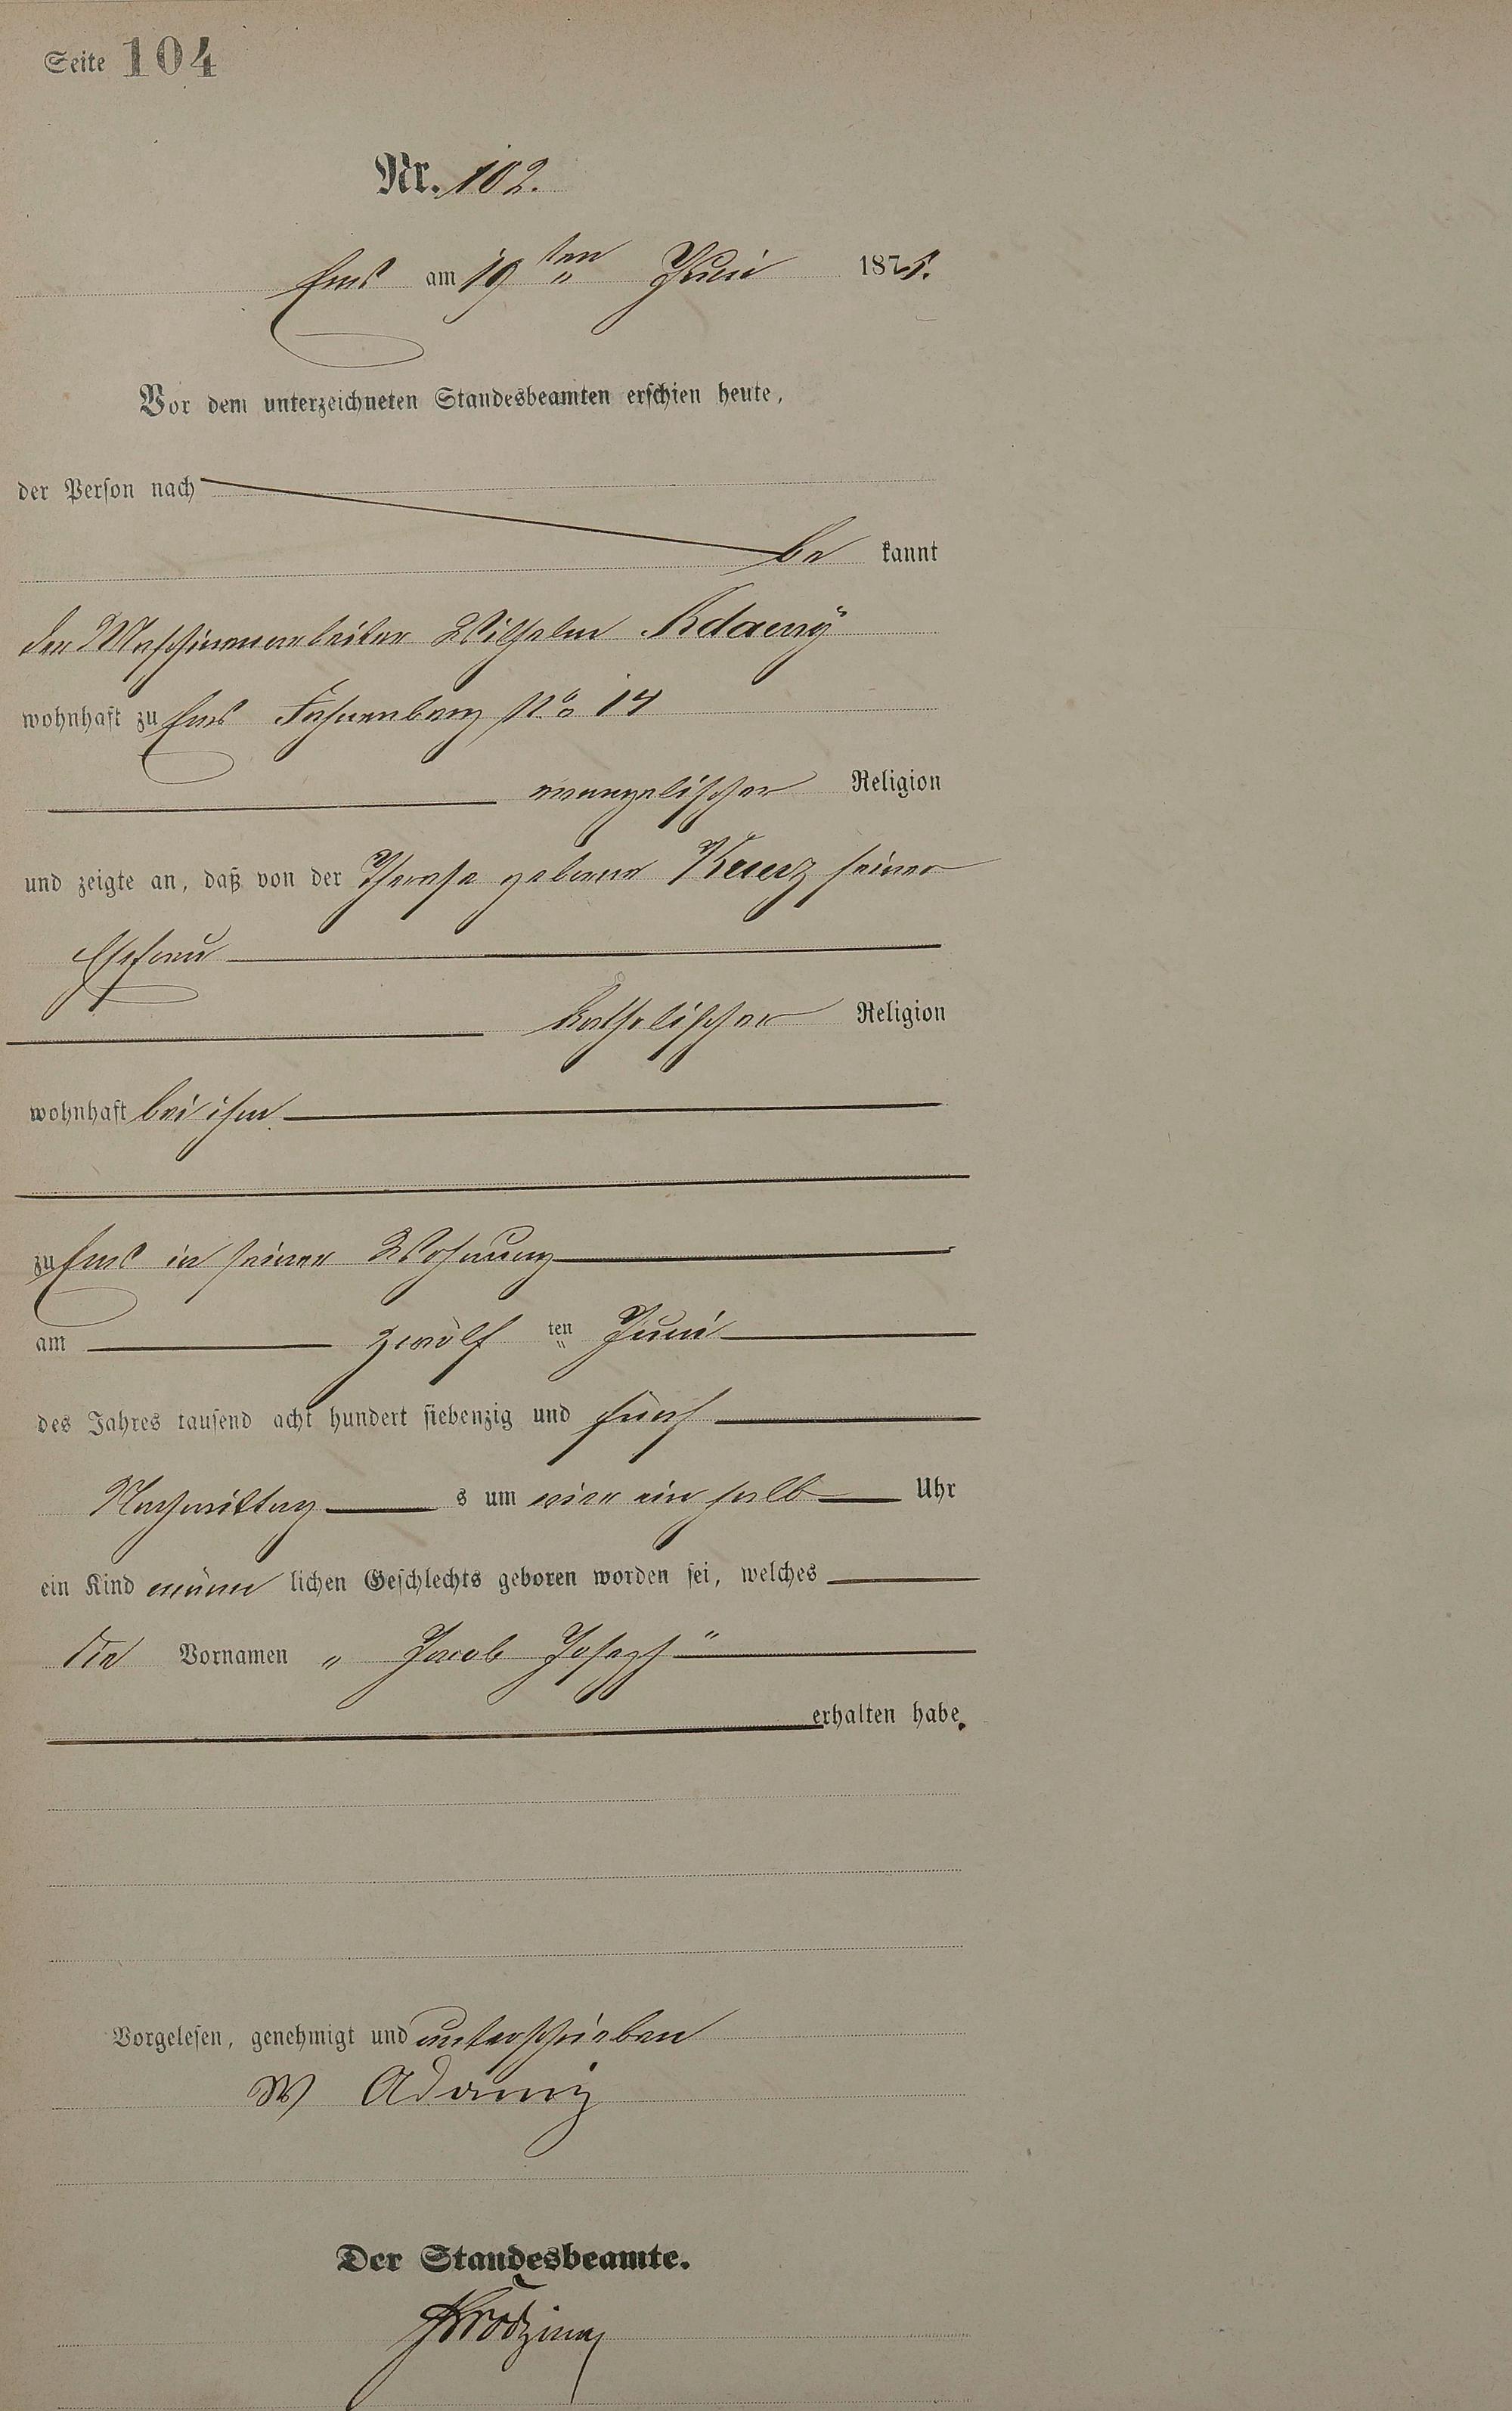 Seite 104
Nr. 102.
Ems am 19ten Juni 1875.
Vor dem unterzeichneten Standesbeamten erschien heute,
der Person nach
be kannt
der Maschinenarbeiter Wilhelm Adamÿ
wohnhaft zu Ems No 14
evangelischer Religion
und zeigte an, daß von der Therese geborene Kunz seiner
Ehefrau
katholischer Religion
wohnhaft bei ihm
zu Ems in seiner Wohnung
am zwölf ten Juni
des Jahres tausend acht hundert siebenzig und fünf
Nachmittag s um vier ein halb Uhr
ein Kind männ lichen Geschlechts geboren worden sei, welches
die Vornamen „ Jacob Joseph "
erhalten habe.
Vorgelesen, genehmigt und unterschrieben
W Adamy
Der Standesbeamte.